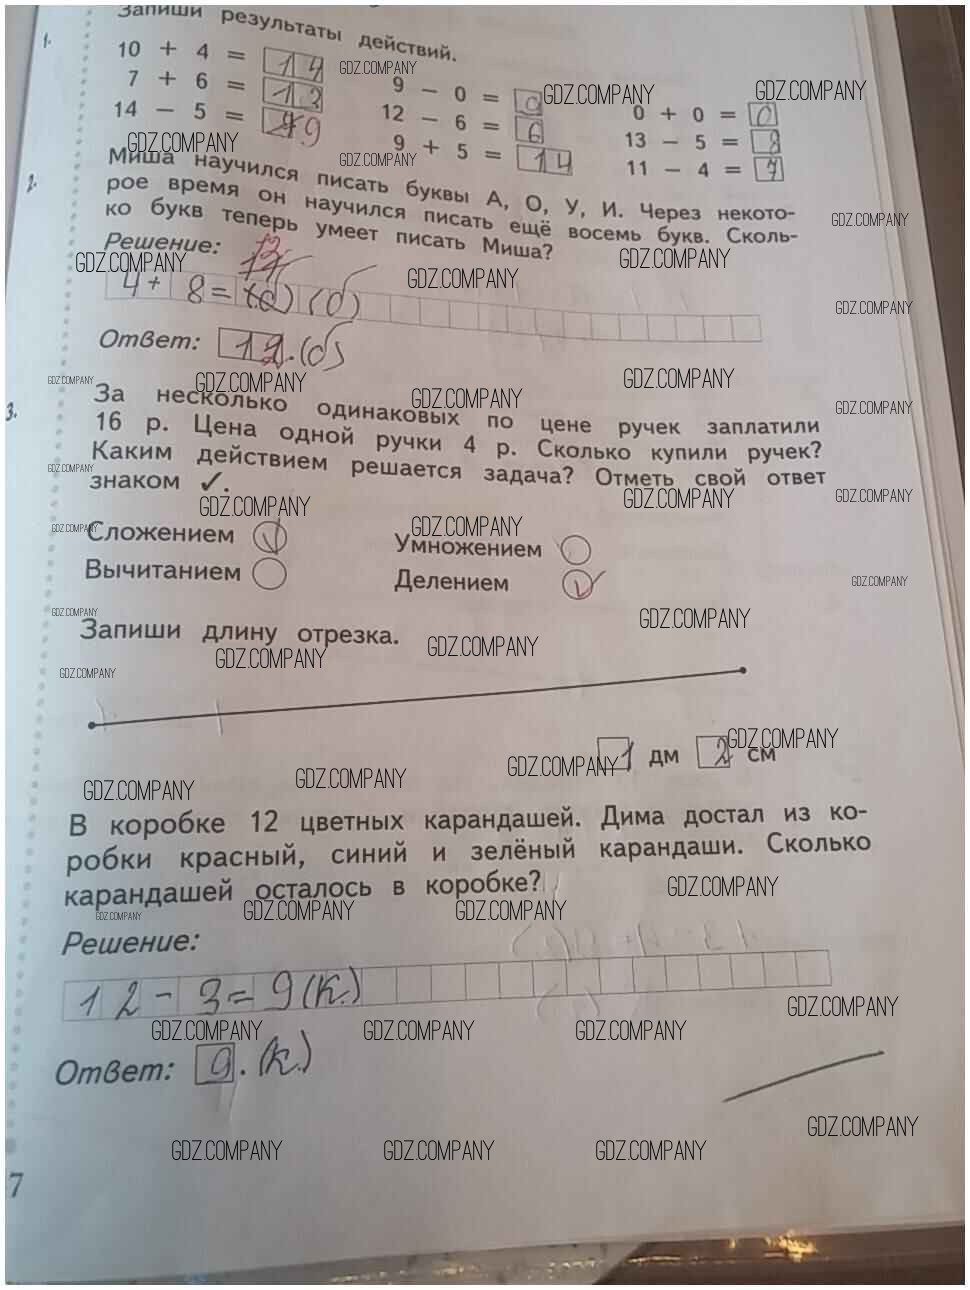 Запиши результаты действий.
1.
10 + 4 = 14
7 + 6 = 13
14 - 5 = 9
9 - 0 = 9
12 - 6 = 6
9 + 5 = 14
0 + 0 = 0
13 - 5 = 8
11 - 4 = 7
2.
Миша научился писать буквы А, О, У, И. Через некото-
рое время он научился писать ещё восемь букв. Сколь-
ко букв теперь умеет писать Миша?
Решение:
4 + 8 = 12 (б)
Ответ: 12.(б)
3.
За несколько одинаковых по цене ручек заплатили
16 р. Цена одной ручки 4 р. Сколько купили ручек?
Каким действием решается задача? Отметь свой ответ
знаком ✓.
Сложением ✓ Умножением
Вычитанием Делением ✓
Запиши длину отрезка.
1 дм 2 см
В коробке 12 цветных карандашей. Дима достал из ко-
робки красный, синий и зелёный карандаши. Сколько
карандашей осталось в коробке?
Решение:
12 - 3 = 9 (к.)
Ответ: 9. (к.)
7
GDZ.COMPANY